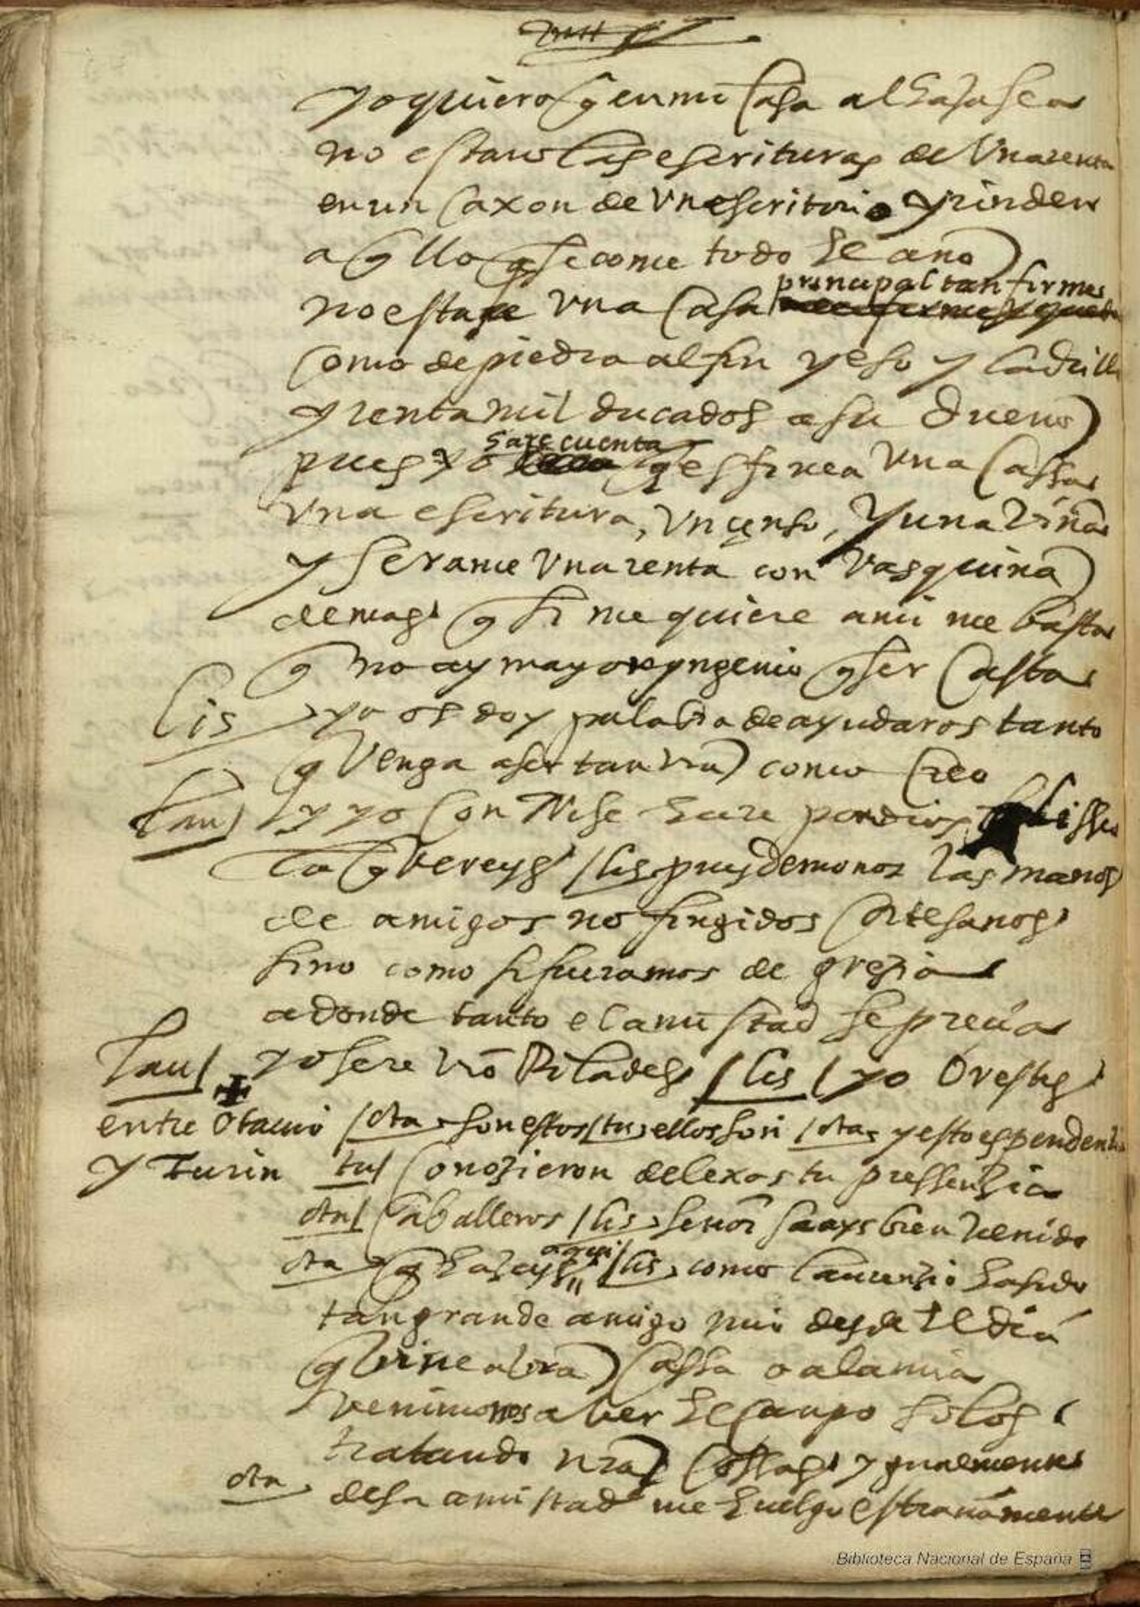 yo quiero q en mi casa alhaja sea
no estan las escrituras de Una renta
en un caxon de Un escritorio y rinden
a qllo q se come todo el año
no esta se Una casa principal tan firme
como de piedra al fin yeso y ladrillo
y renta mil ducados a su dueño
pues yo hare cuenta q es finca Una cassa
Una escritura, Un censo, y una viña
y serame Una renta con vasquiña
demas q si me quiere a mi me basta
q no ay mayor yngenio q ser casta
lis yo os doy palabra de ayudaros tanto
q venga a ser tan vra como creo
lau y yo con Nise hare por dios
lo q vereys lis pues demonos las manos
de amigos no fingidos cortesanos
sino como si fueramos de grezia
adonde tanto el amistad se precia
lau yo sere vro Pilades lis yo Orestes
entre Otauio ota son estos tu ellos son ota y esto es pendenzia
y Turin tu conozieron de lexos tu pressenzia
ota caballeros lis señor seays bien venido
ota q hazeys aqui lis como laurenzio ha sido
tan grande amigo mio desde el dia
q vine a vra cassa o a la mia
venimonos a ver el campo solos
tratando nras cossas ygualmente
ota desa amistad me huelgo estrañamente
Biblioteca Nacional de España